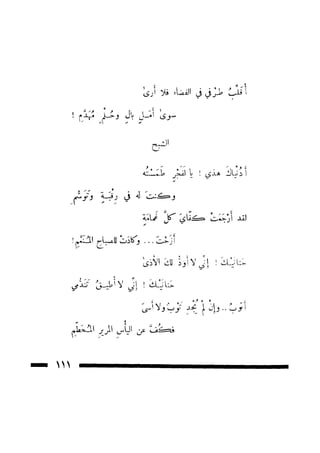 أُقَلِّبُ طَرْفي في الفضاء فلا أرىٰ
سوىٰ أمَلٍ بالٍ وحُلْمٍ مُهَدَّمِ !
الشبح
أدُنْياكَ هذي ! يا لَفَجْرٍ طَمَسْتُه
وكنتَ له في رِقْبَةٍ وتَوَسُّمِ
لقد أرْجَمَتْ كفّايَ كلَّ غمامةٍ
أزَحْتَ ... وكادَتْ للصباحِ المُنَغَّمِ !
حنانَيْكَ ! إنّي لا أودُّ لكَ الأذىٰ
حنانَيْكَ ! إنّي لا أُطيقُ تَنَدُّمي
أتوبُ .. وإنْ لمْ يُجْدِ تَوْبٌ ولا أسىً
فكفِّفْ عن اليأسِ المريرِ المُحَطِّمِ
١١١